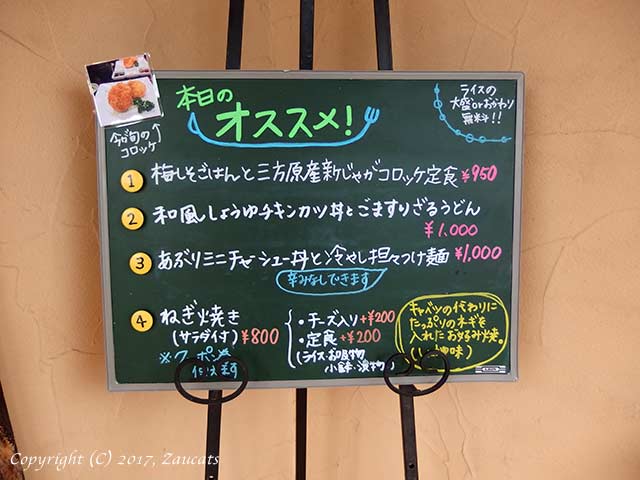 本日の
オススメ!
ライスの
大盛orおかわり
無料!!
今が旬の↑
コロッケ
1 梅しそごはんと三方原産新じゃがコロッケ定食 ¥950
2 和風しょうゆチキンカツ丼とごますりざるうどん
¥1,000
3 あぶりミニチャーシュー丼と冷やし担々つけ麺 ¥1,000
辛みなしできます
4 ねぎ焼き
(サラダ付) ¥800
※クーポン
使えます
・チーズ入り +¥200
・定食 +¥200
(ライス・お吸物
小鉢・漬物)
キャベツの代わりに
たっぷりのネギを
入れたお好み焼。
味)
Copyright (C) 2017, Zaucats